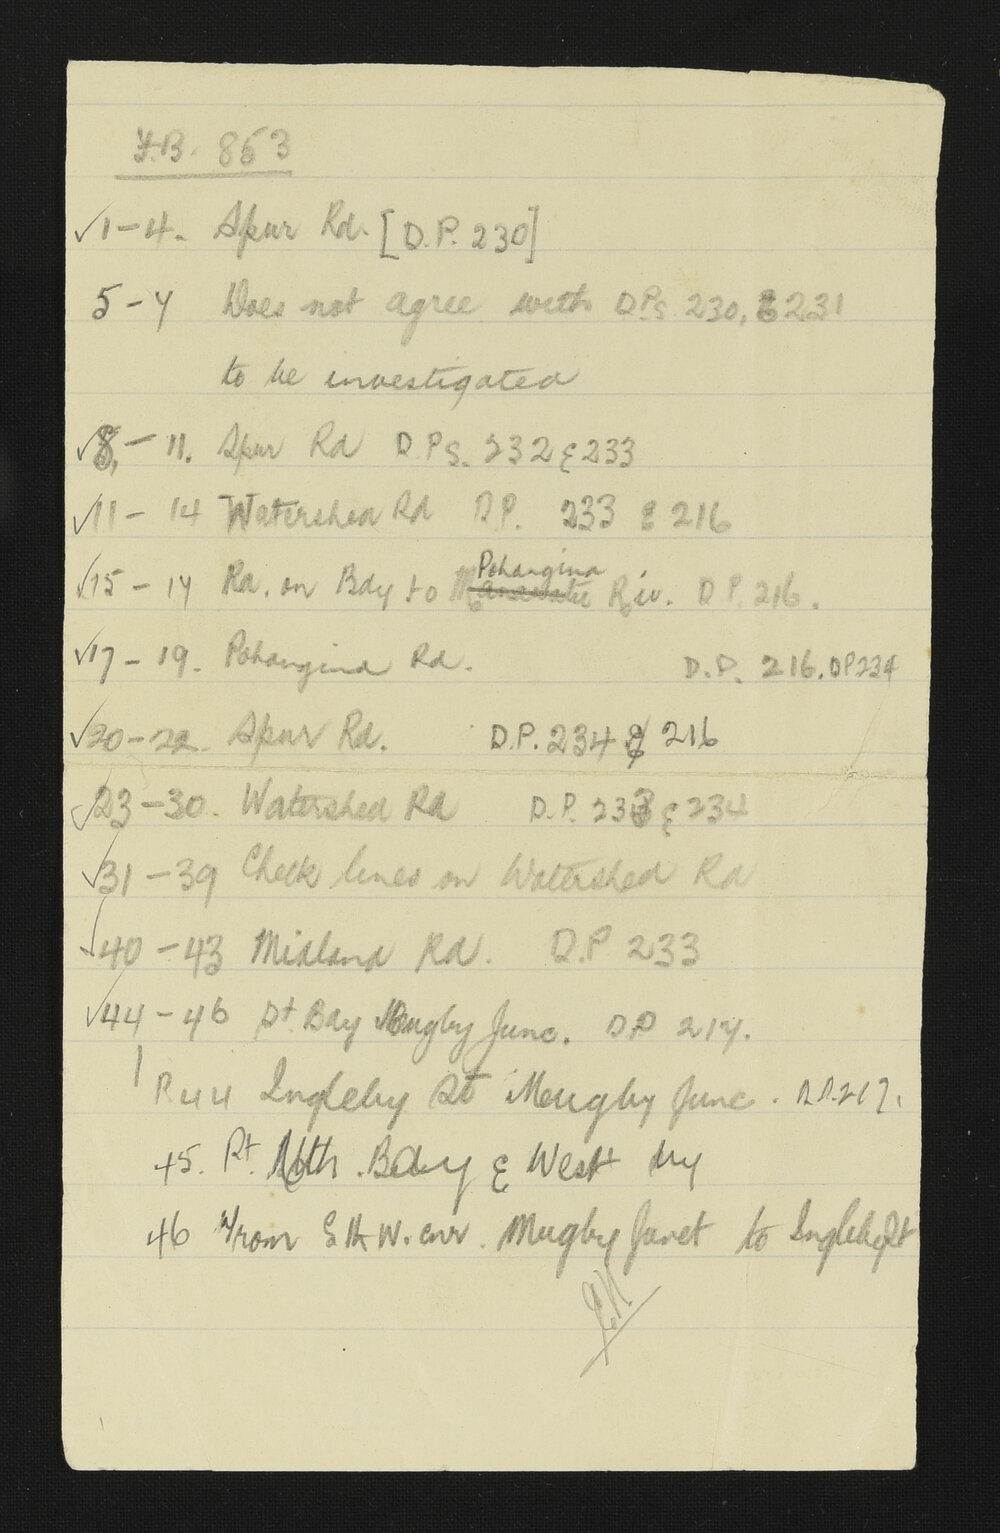 F.B. 853
✓1-4. Spur Rd. [D.P. 230]
5-7 Does not agree with D.Ps. 230, & 231
to be investigated
✓8,-11. Spur Rd D.Ps. 232 & 233
✓11-14 Watershed Rd D.P. 233 & 216
✓15-17 Rd. on Bdy to Pohangina Riv. D.P. 216.
✓17-19. Pohangina Rd. D.P. 216. DP 234
✓20-22. Spur Rd. D.P. 234 & 216
✓23-30. Watershed Rd D.P. 233 & 234
✓31-39 Check lines on Watershed Rd
✓40-43 Midland Rd. D.P 233
✓44-46 Pt Bdy Mugby Junc. DP 217.
P.44 Ingleby St Mugby Junc. D.P. 217.
45. Pt. Nth. Bdy & West
46 from S.H.W. cnr. Mugby Junct to Ingleby St